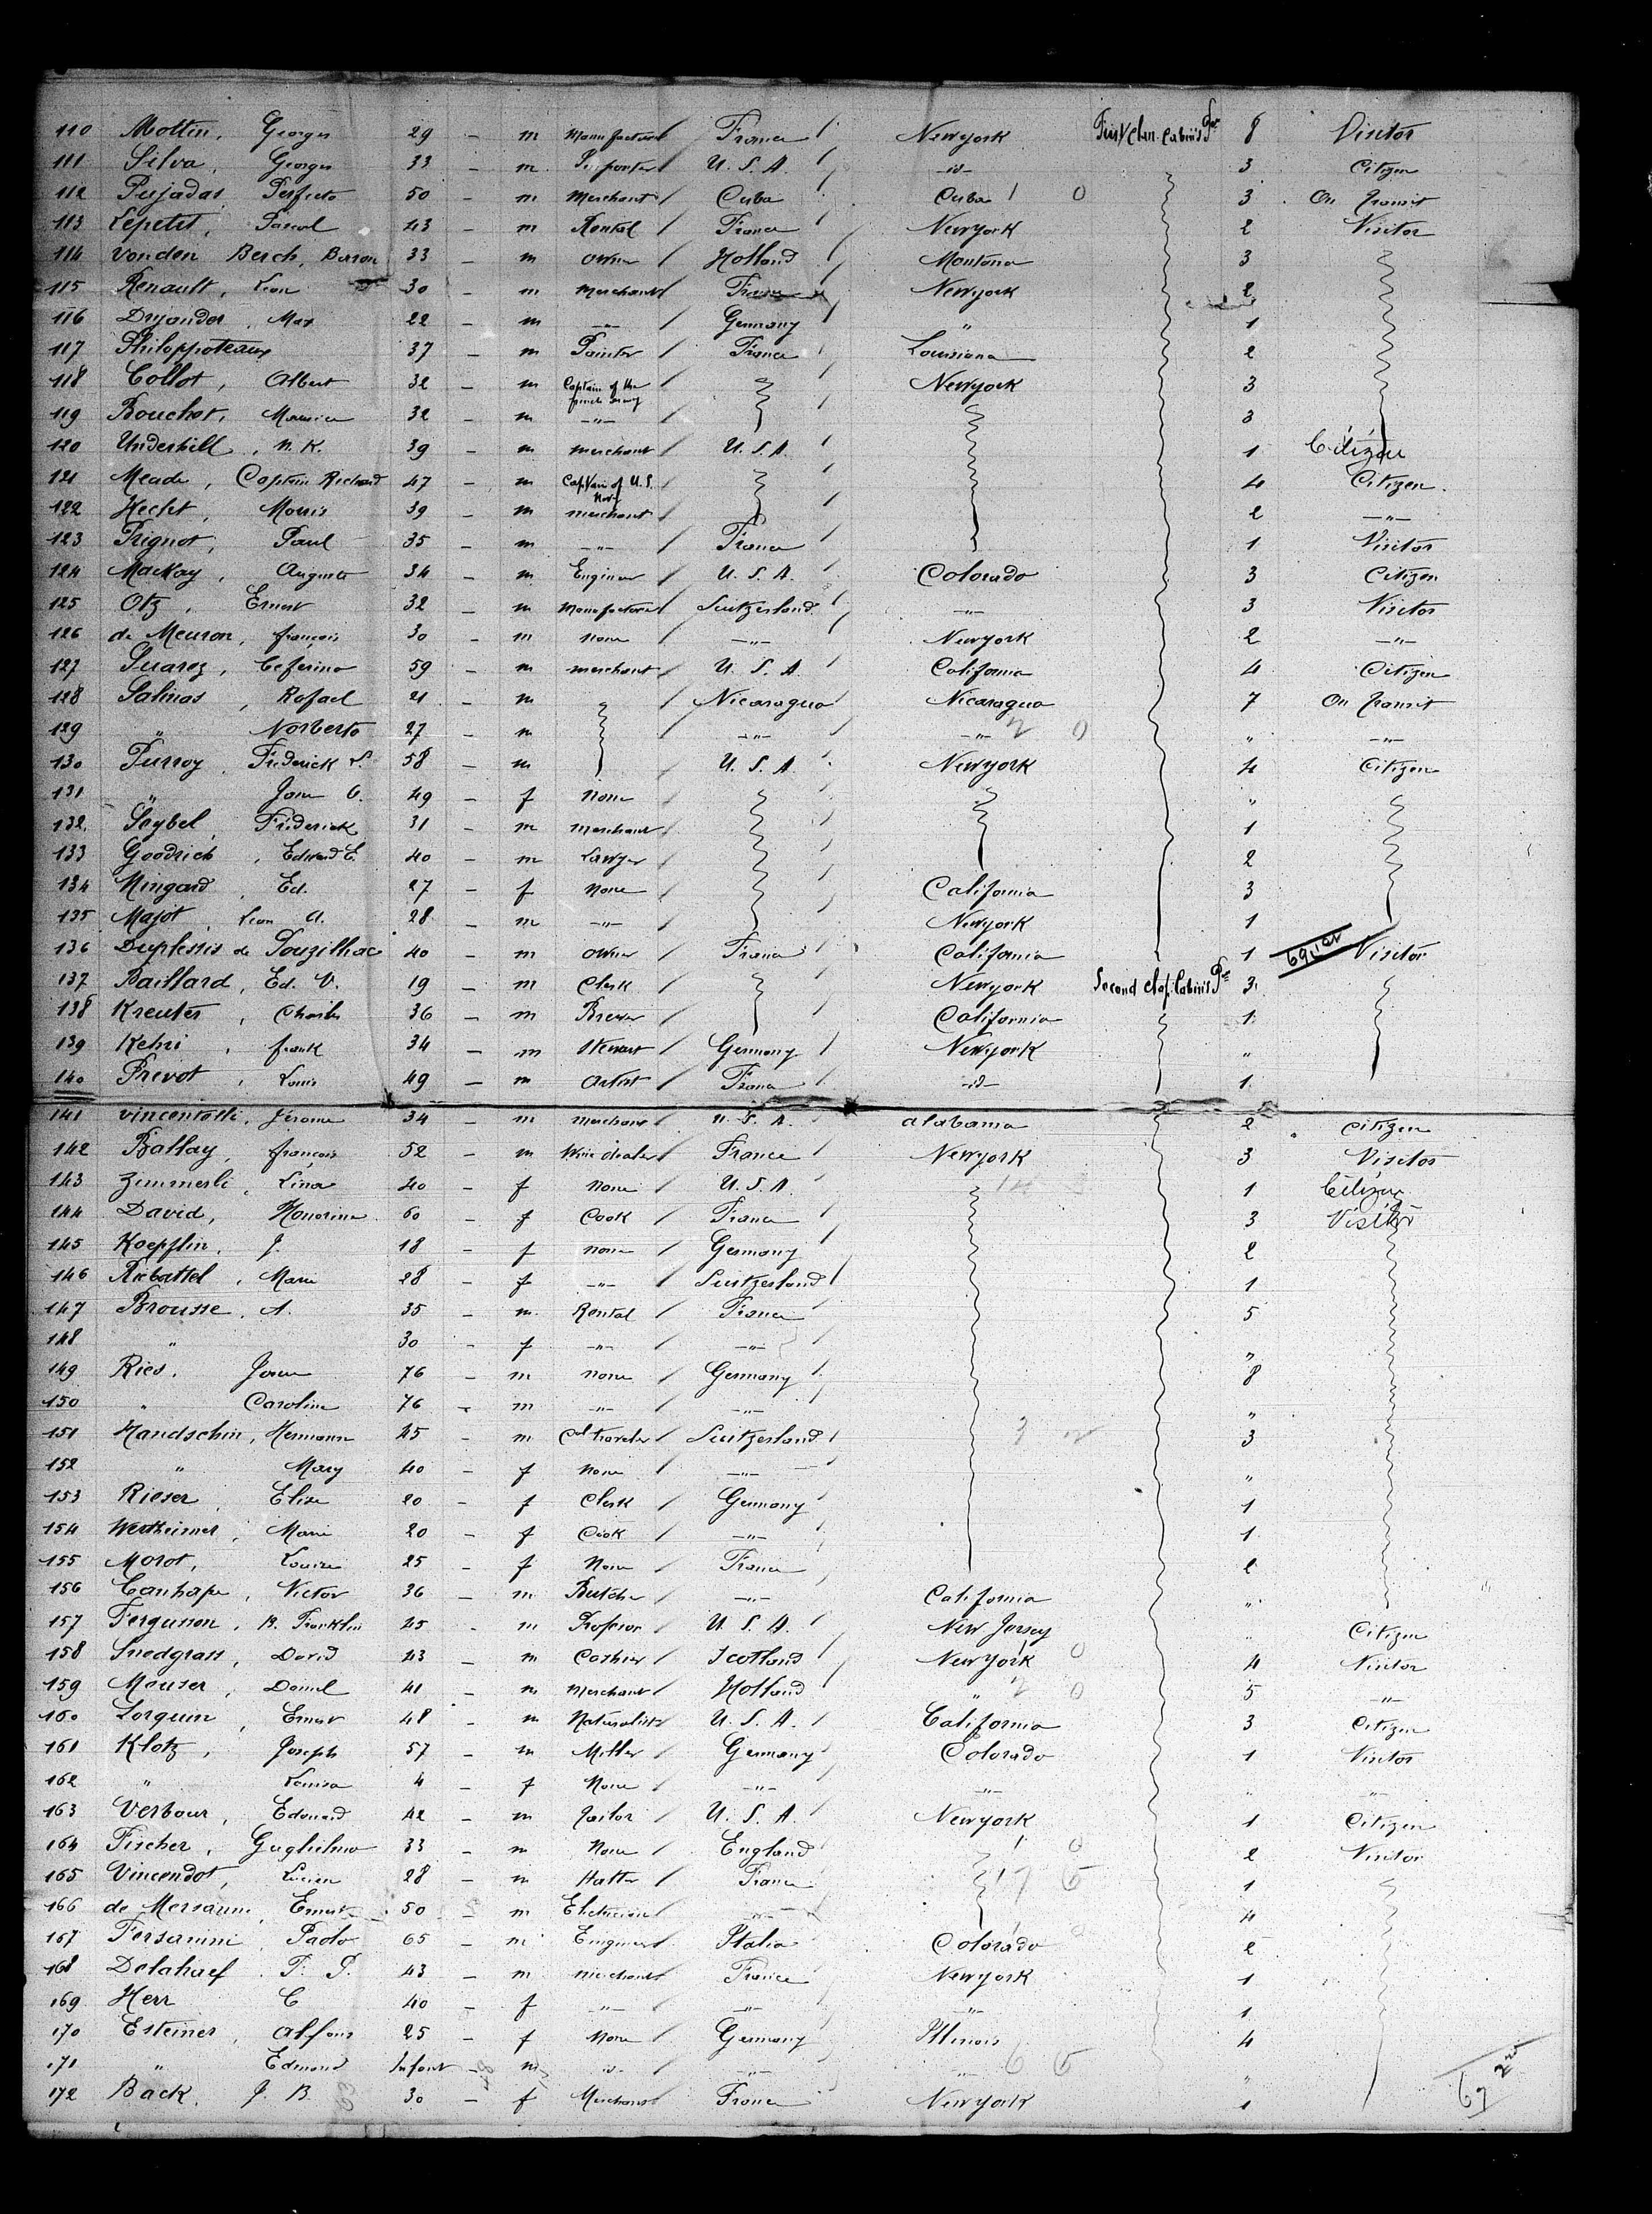 110 Mottin, Georges 29 - m Manufacturer / France / Newyork First Class Cabin's Pgr 8 Visitor
111 Silva, Georges 33 - m Importer / U. S. A. / -id- 3 Citizen
112 Pujadas, Perfecto 50 - m Merchant / Cuba Cuba 1 0 3 On Transit
113 Lepetit, Pascal 43 - m Rental / France / Newyork 2 Visitor
114 Vonden Berch, Barron 33 - m Owner / Holland / Montana 3
115 Renault, Leon 30 - m Merchant / France Newyork 2
116 Dryander, Max 22 - m -"- / Germany / " 1
117 Philoppoteaux 37 - m Painter / France / Louisiana 2
118 Collot, Albert 32 - m Captain of the french army / Newyork 3
119 Bouchot, Maurice 32 - m -"- / 3
120 Underhill, N. K. 39 - m merchant / U. S. A. / 1 Citizen
121 Meade, Captain Richard 47 - m Captain of U. S. Navy / 4 Citizen
122 Hecht, Morris 39 - m merchant / 2 -"-
123 Prignot, Paul 35 - m -"- / France / 1 Visitor
124 MacKay, Auguste 34 - m Engineer / U. S. A. / Colorado 3 Citizen
125 Otz, Ernest 32 - m Manufacturer / Suitzerland -"- 3 Visitor
126 de Meuron, françois 30 - m none / -"- / Newyork 2 -"-
127 Suarez, Ceferino 59 - m merchant / U. S. A. / California 4 Citizen
128 Salinas, Rafael 21 - m / Nicaragua / Nicaragua 7 On Transit
129 " Norberto 27 - m / -"- -"- 2 0 " -"-
130 Purroy, Frederick S. 58 - m / U. S. A. Newyork 4 Citizen
131 " Jane C. 49 - f none / "
132 Soybel, Frederick 31 - m merchant / 1
133 Goodrich, Edward E. 40 - m Lawyer / 2
134 Mingard, Ed. 27 - f none / California 3
135 Majot, Leon A. 28 - m -"- / Newyork 1
136 Duplessis de Pouzilhac 40 - m Owner / France / California 1 Visitor
137 Baillard, Ed. V. 19 - m Clerk / Newyork Second Class Cabin's Pgr 3
138 Kreuter, Charles 36 - m Brewer / California 1
139 Kehri, frank 34 - m Stewart / Germany / Newyork "
140 Prevot, Louis 49 - m Artist / France / -id- 1
141 Vincentelli, Jerome 34 - m merchant / U. S. A. / Alabama 2 Citizen
142 Ballay, françois 52 - m Wine dealer / France / Newyork 3 Visitor
143 Zimmerli, Lina 40 - f none / U. S. A. / 1 Citizen
144 David, Honorine 60 - f Cook / France / 3 Visitor
145 Koepflin, J. 18 - f none / Germany / 2
146 Riebattel, Marie 28 - f -"- / Suitzerland / 1
147 Brousse, A. 35 - m Rental / France / 5
148 " 30 - f -"- / -"- / "
149 Ries, Jean 76 - m none / Germany / 8
150 " Caroline 76 - m -"- / -"- / "
151 Handschin, Hermann 45 - m Cal traveler / Suitzerland / 3
152 " Mary 40 - f none / -"- "
153 Rieser, Elise 20 - f Clerk / Germany / 1
154 Wertheimer, Marie 20 - f Cook / -"- / 1
155 Morot, Louise 25 - f None / France / 2
156 Canhape, Victor 36 - m Butcher / -"- / California "
157 Fergusson, B. Franklin 25 - m Professor / U. S. A. / New Jersey " Citizen
158 Snedgrass, David 43 - m Cashier / Scotland / Newyork 1 0 4 Visitor
159 Mouser, Daniel 41 - m Merchant / Holland " 2 0 5 -"-
160 Lorquin, Ernest 48 - m Naturalist / U. S. A. / California 3 Citizen
161 Klotz, Joseph 57 - m Miller / Germany / Colorado 1 Visitor
162 " Louisa 4 - f None / -"- / -"- " -"-
163 Verbour, Edouard 42 - m Tailor / U. S. A. / Newyork 1 Citizen
164 Fischer, Guglielmo 33 - m None / England / 1 0 2 Visitor
165 Vincendot, Lucien 28 - m Hatter / France 17 5 1
166 de Mersanne, Ernest 50 - m Electrician / -"- / 4
167 Forsanini, Paolo 65 - m Engineer / Italia Colorado 2
168 Delahaef, T. P. 43 - m merchant / France / Newyork 1
169 Herr C 40 - f -"- / -"- -"- 1
170 Esteiner, Alfons 25 - f None / Germany / Illinois 4
171 " Edmond Infant - m id - / -"- -"- 6 5 "
172 Back, J. B 30 - f Merchant / France Newyork 1
67 2nd